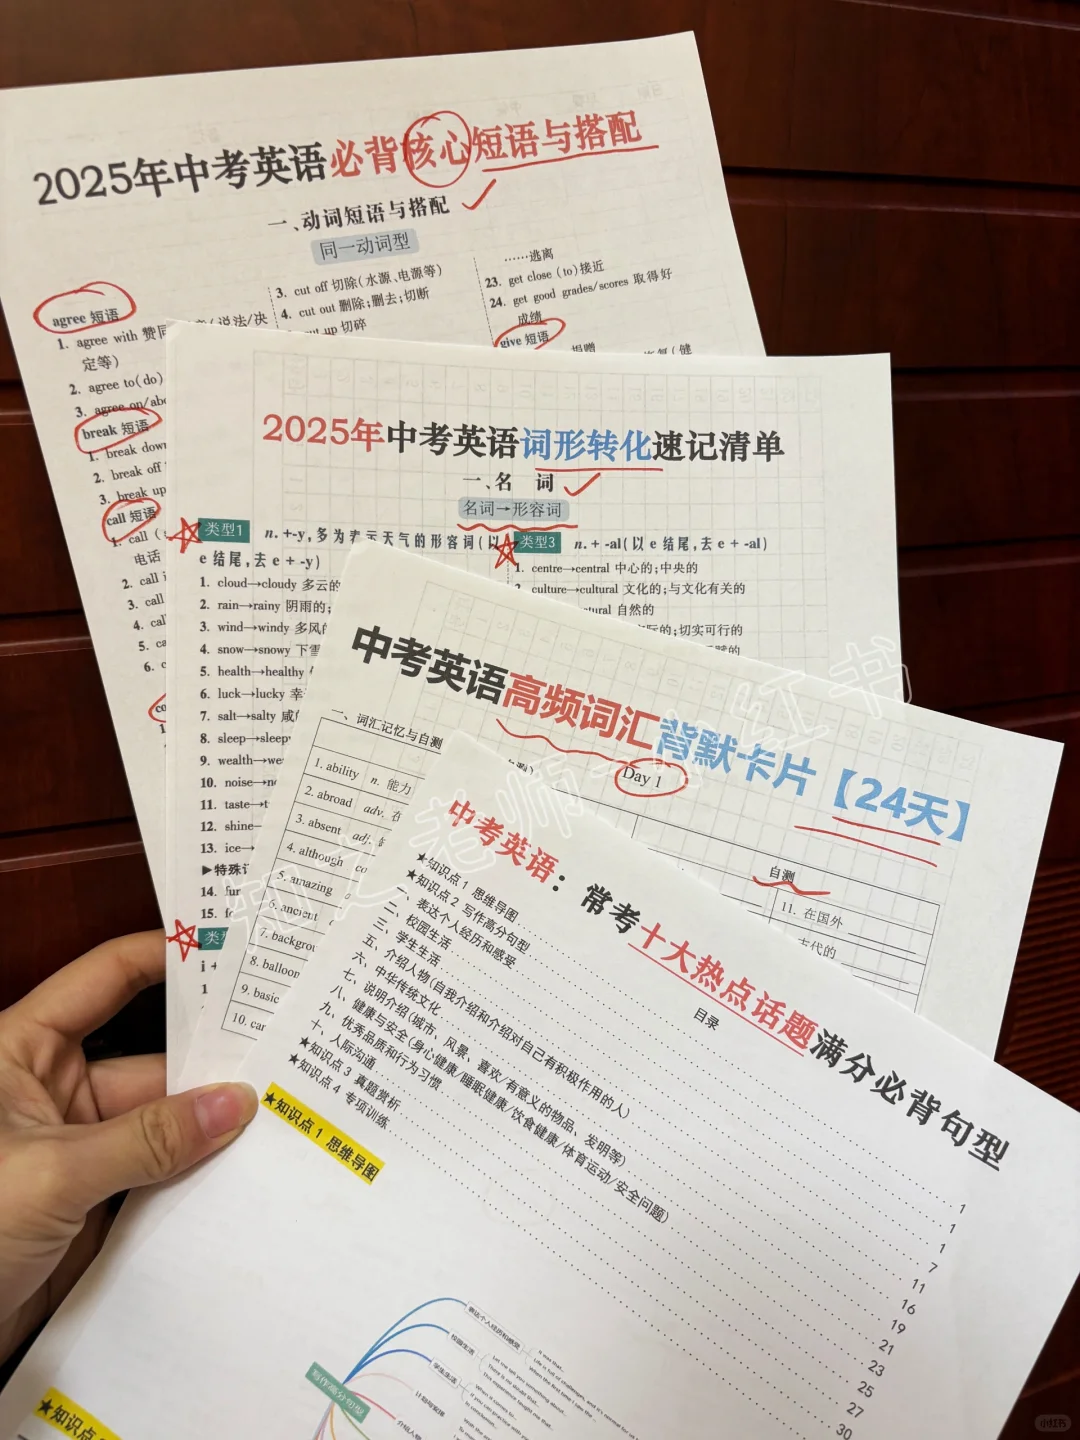 2025年中考英语必背核心短语与搭配
一、动词短语与搭配
同一动词型
agree 短语
1. agree with 赞同
(说法/决
定等)
2. agree to(do)
3. agree on/abo
break 短语
1. break down
2. break off
3. break up
call 短语
1. call
电话
2. call
3. call
4. cal
5. ca
6. c
3. cut off 切除(水源、电源等)
4. cut out 删除;删去;切断
cut up 切碎
……逃离
23. get close (to)接近
24. get good grades/scores 取得好
成绩
give 短语
捐赠
2025年中考英语词形转化速记清单
一、名 词
名词→形容词
类型1 n. +-y,多为表示天气的形容词(以
e 结尾,去 e + -y)
1. cloud→cloudy 多云的
2. rain→rainy 阴雨的;
3. wind→windy 多风的
4. snow→snowy 下雪
5. health→healthy
6. luck→lucky 幸
7. salt→salty 咸的
8. sleep→sleepy
9. wealth→we
10. noise→no
11. taste→t
12. shine→
13. ice→
▶特殊记
14. fur
15. fo
类型
i +
1
类型3 n. + -al(以 e 结尾,去 e + -al)
1. centre→central 中心的;中央的
2. culture→cultural 文化的;与文化有关的
tural 自然的
际的;切实可行的
中考英语高频词汇背默卡片【24天】
一、词汇记忆与自测
Day 1
1. ability n. 能力
2. abroad adv. 在
3. absent adj.
4. although co
5. amazing
6. ancient
7. backgrou
8. balloon
9. basic
10. car
自测
11. 在国外
古代的
中考英语：常考十大热点话题满分必背句型
目录
★知识点1 思维导图 1
★知识点2 写作高分句型 1
一、表达个人经历和感受 1
二、校园生活 7
三、学生生活 11
五、介绍人物(自我介绍和介绍对自己有积极作用的人) 16
六、中华传统文化 19
七、说明介绍(城市、风景、喜欢/有意义的物品、发明等) 21
八、健康与安全(身心健康/睡眠健康/饮食健康/体育运动/安全问题) 23
九、优秀品质和行为习惯 25
十、人际沟通 27
★知识点3 真题赏析 30
★知识点4 专项训练
★知识点1 思维导图
写作高分句型
表达个人经历和感受
校园生活
学生生活
计划与安排
介绍人物
It was that...
★知识点
知之老师
小红书
小红书